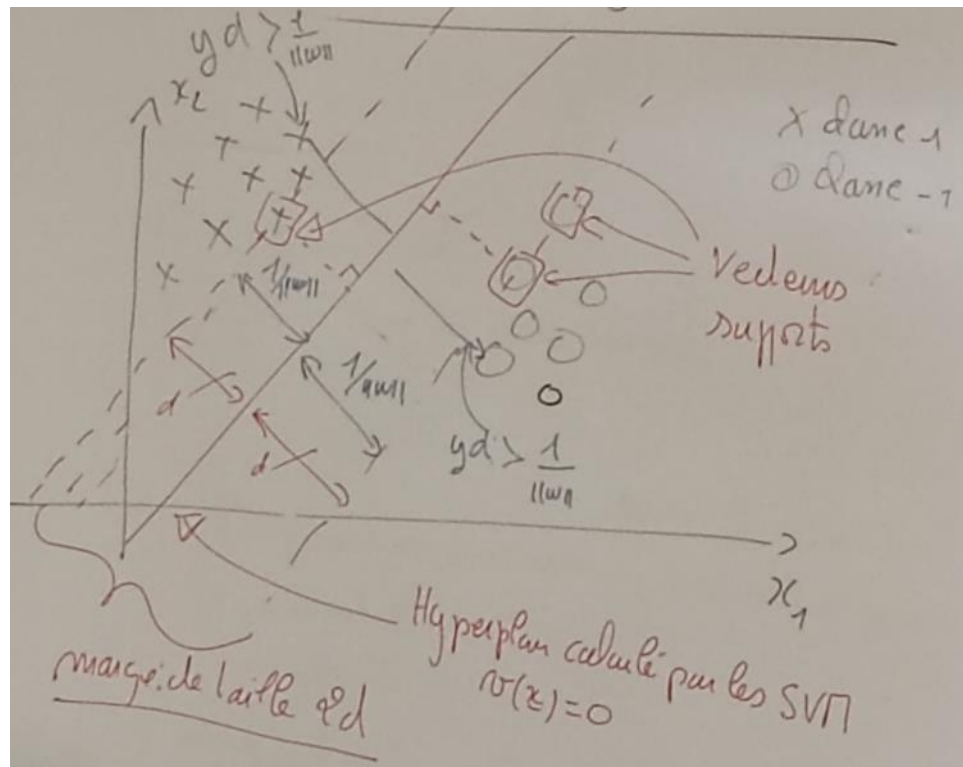 yd > 1/||w||
x2
x classe 1
o classe -1
1/||w||
Vecteurs
supports
1/||w||
d
d
yd > 1/||w||
x1
Hyperplan calculé par les SVM
v(x)=0
marge de taille 2d